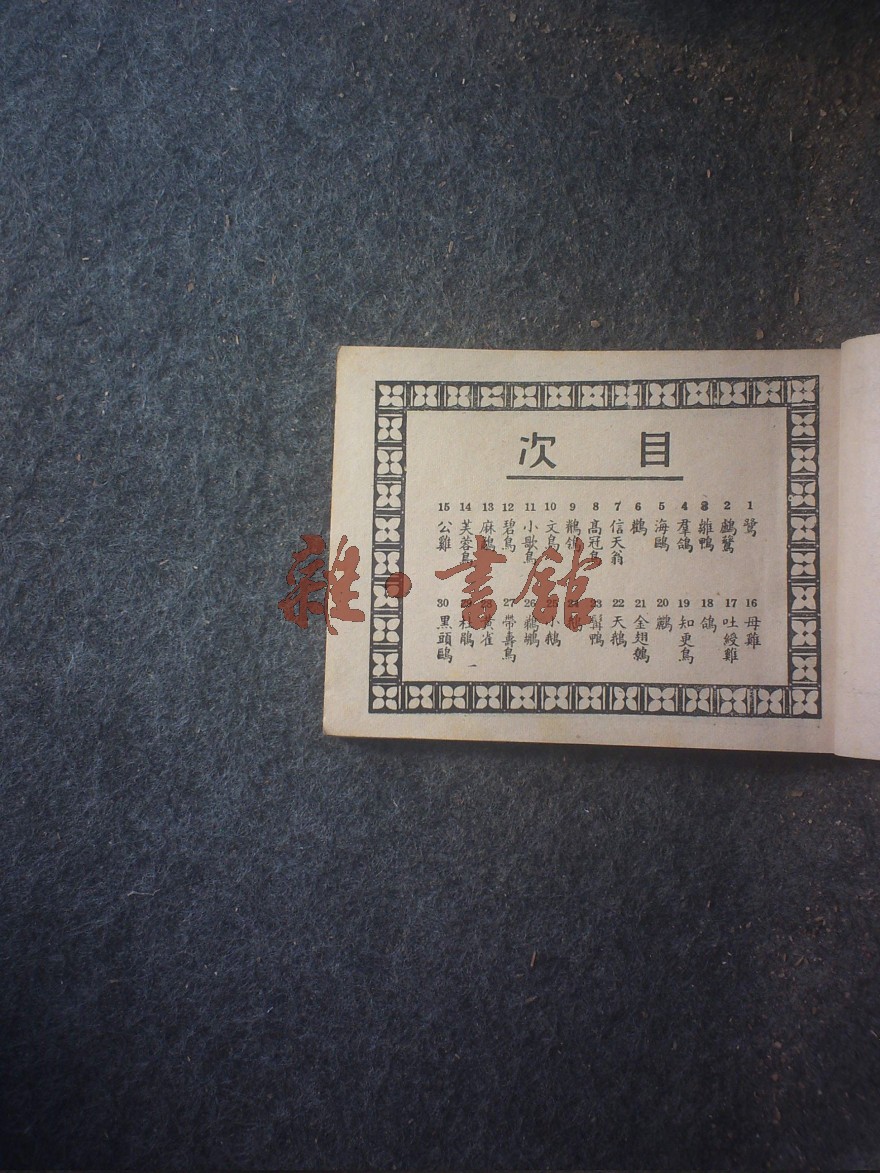 目次
1 鷺
2 鸕鶿
3 雛鴨
4 羣鴿
5 海鷗
6 鸛
7 信天翁
8 高冠鳥
9 鶺鴒
10 文鳥
11 小歌鳥
12 碧鳥
13 麻
14 芙蓉鳥
15 公雞
16 母雞
17 吐綬雞
18 鴿
19 知更鳥
20 鷓
21 金翅
22 天鵝
23 鴨
24
25 小鵝
26 鵜鶘
27 帶壽鳥
28 黃雀
29 杜鵑
30 黑頭鷗
雜·書館